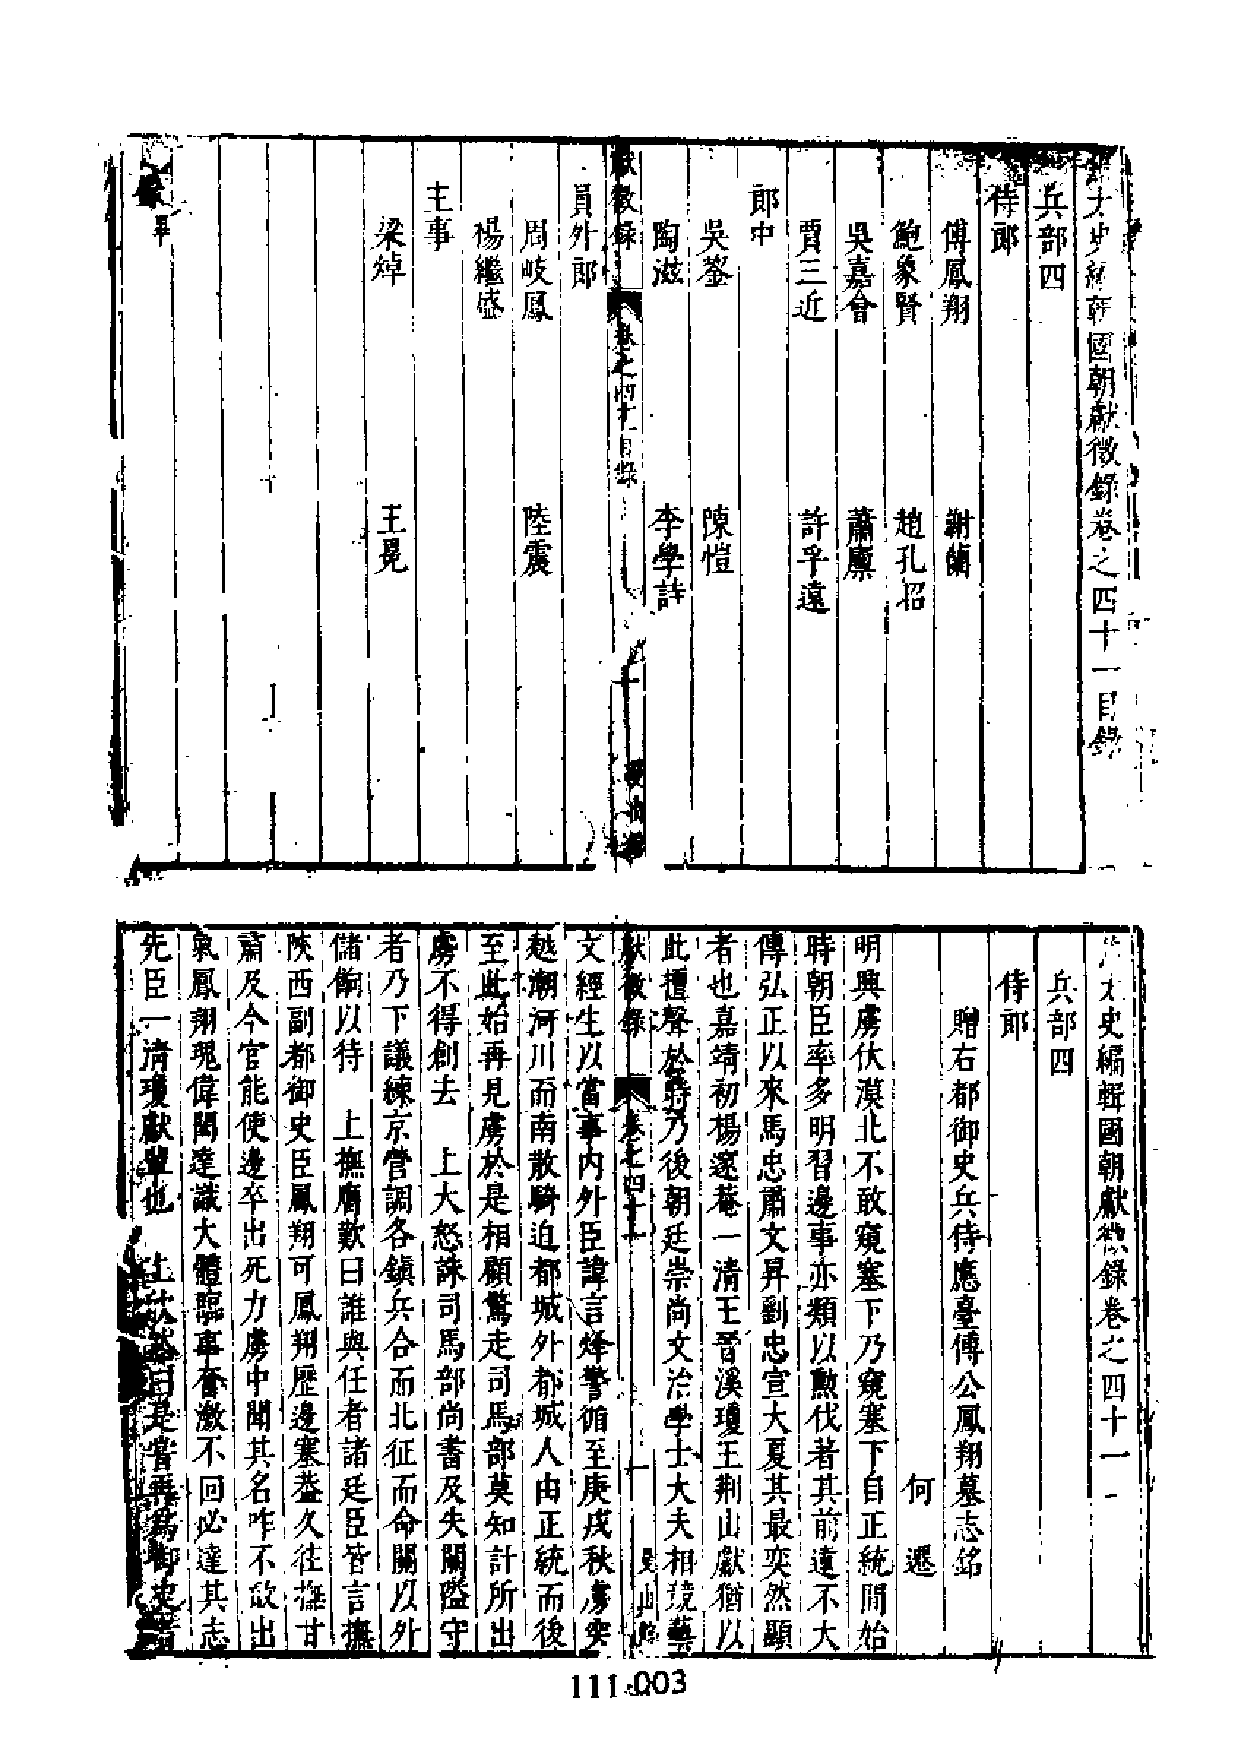 太史編輯國朝獻徵錄卷之四十一目錄
兵部四
侍郎
傅鳳翔 謝蘭
鮑象賢 趙孔昭
吳嘉會 蕭廩
賈三近 許孚遠
郎中
吳鋆 陳愷
陶滋 李學詩
獻徵錄 卷之四十一目錄
員外郎
周岐鳳 陸震
楊繼盛
主事
梁焯 王冕
太史編輯國朝獻徵錄卷之四十一
兵部四
侍郎
贈右都御史兵侍應臺傅公鳳翔墓志銘
何遷
明興虜伏漠北不敢窺塞下乃窺塞下自正統間始
時朝臣率多明習邊事亦類以勳伐著其前遠不大
傳弘正以來馬忠肅文昇劉忠宣大夏其最奕然顯
者也嘉靖初楊邃菴一清王晉溪瓊王荆山獻猶以
此擅聲於時乃後朝廷崇尚文治學士大夫相競藝
獻徵錄 卷之四十一 一
文經生以當事內外臣諱言烽警循至庚戌秋虜突
越潮河川而南散騎迫都城外都城人由正統而後
至此始再見虜於是相顧驚走司馬部莫知計所出
虜不得創去 上大怒誅司馬部尚書及失關隘守
者乃下議練京營調各鎮兵合而北征而命關以外
儲餉以待 上撫膺歎曰誰與任者諸廷臣皆言撫
陝西副都御史臣鳳翔可鳳翔歷邊塞葢久往撫甘
肅及今官能使邊卒出死力虜中聞其名咋不敢出
氣鳳翔瑰偉閎達識大體臨事奮激不回必達其志
先臣一清瓊獻輩也 上曰是嘗再爲御史
111-003